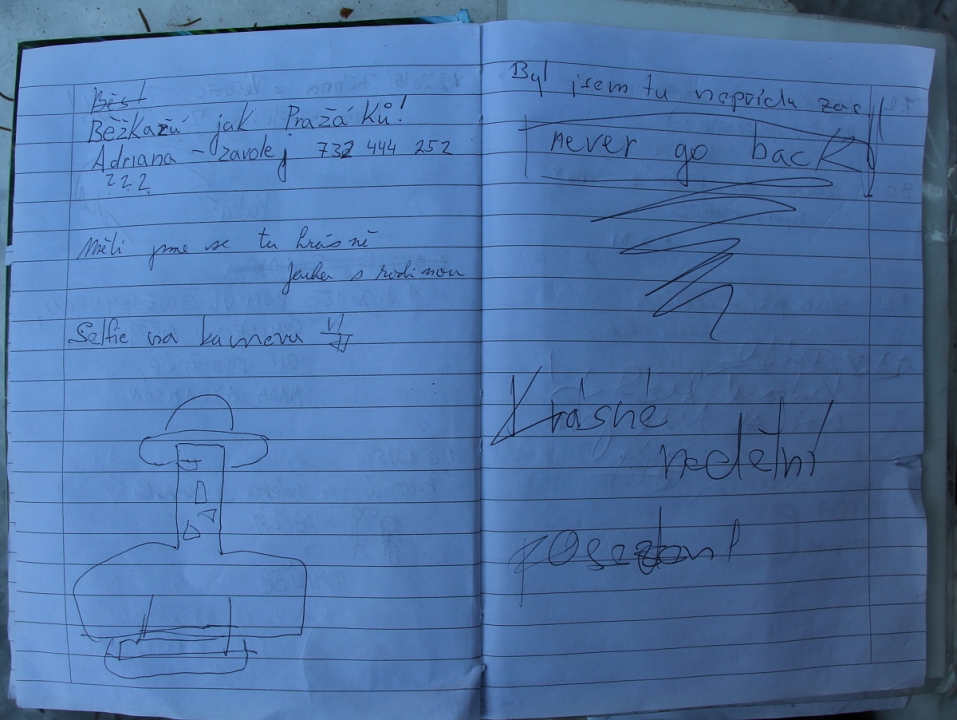 Běžkařů jak Pražáků!
Adriana - zavolej 732 444 252
???
Měli jsme se tu krásně
s rodinou
Selfie na kameru
Byl jsem tu nepřidu zas
never go back
Krásné
nedělní
posezení